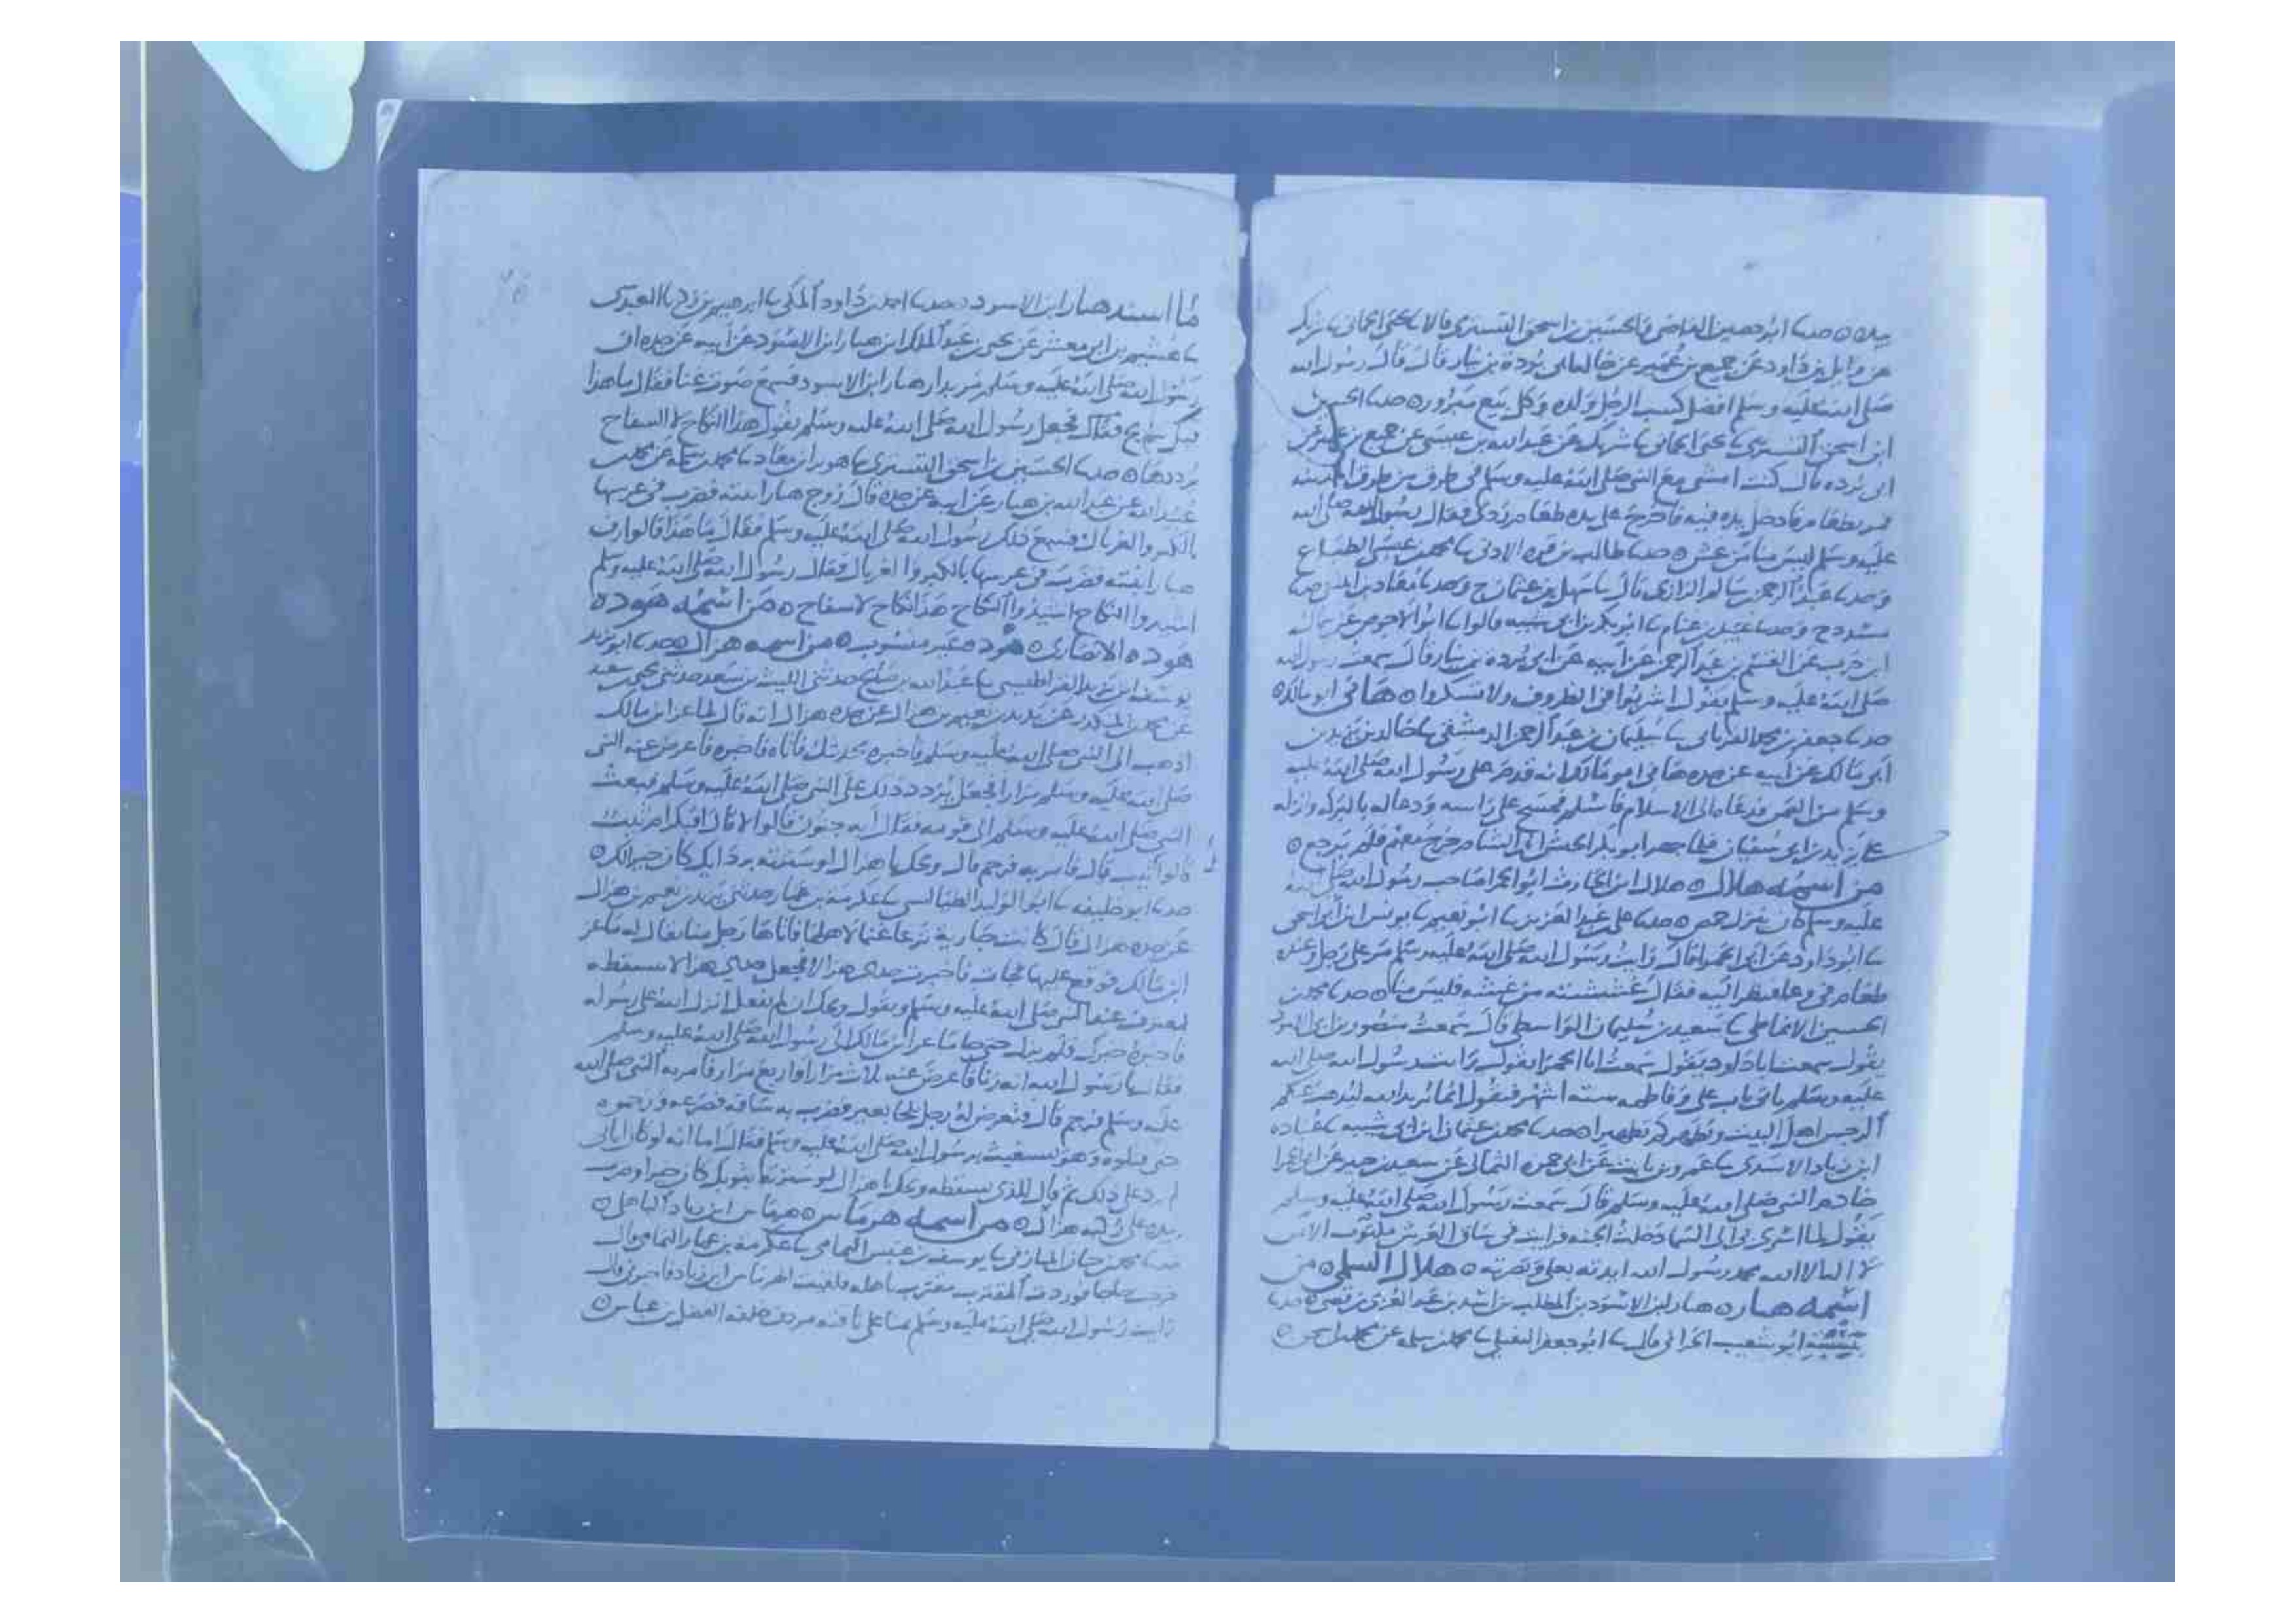 بيده ه حدثنا ابو حصين القاضي والحسين بن اسحق التستري قالا ثنا يحيى الحماني ثنا شريك
عن وايل بن داود عن جميع بن عمير عن خاله ابي بردة بن نيار قال قال رسول الله
صلى الله عليه وسلم افضل كسب الرجل ولده وكل بيع مبرور ه حدثنا الحسين
ابن اسحق التستري ثنا يحيى الحماني ثنا شريك عن عبد الله بن عيسى عن جميع بن عمير عن
ابي برده قال كنت امشي مع النبي صلى الله عليه وسلم في طرف من طرق المدينه
فمر بطعام فادخل يده فيه فاخرج على يده طعام ردي فقال رسول الله صلى الله
عليه وسلم ليس منا من غش ه حدثنا طالب بن قره الادني ثنا محمد بن عيسى الطباع
وحدثنا عبد الرحمن بن سالم الرازي قال ثنا سهل بن عثمان ح وحدثنا معاذ بن المثنى ثنا
مسدد ح وحدثنا عبيد بن غنام ثنا ابو بكر بن ابي شيبه قالوا ثنا ابو الاحوص عن سماك
ابن حرب عن القسم بن عبد الرحمن عن ابيه عن ابي بردة بن نيار قال سمعت رسول الله
صلى الله عليه وسلم يقول اشربوا في الظروف ولا تسكروا ه هاني ابو مالك ه
حدثنا جعفر بن محمد الفريابي ثنا سليمان بن عبد الرحمن الدمشقي ثنا خالد بن يزيد بن
ابي مالك عن ابيه عن جده هاني ابو مالك انه قدم على رسول الله صلى الله عليه
وسلم من اليمن فدعاه الى الاسلام فاسلم فمسح على راسه ودعا له بالبركه وانزله
على يزيد بن ابي سفيان فلما جهز ابو بكر الجيش الى الشام خرج معهم فلم يرجع ه
من اسمه هلال ه هلال ابن الحارث ابو الحمرا صاحب رسول الله صلى الله
عليه وسلم كان ينزل حمص ه حدثنا علي بن عبد العزيز ثنا ابو نعيم ثنا يونس ابن ابي اسحق
ثنا ابو داود عن ابي الحمرا قال رايت رسول الله صلى الله عليه وسلم مر على رجل وعنده
طعام في وعا فنظر اليه فقال غششته من غشنا فليس منا ه حدثنا محمد بن
الحسين الانماطي ثنا سعيد بن سليمان الواسطي قال سمعت منصور بن ابي الاسود
يقول سمعت ابا داود يقول سمعت ابا الحمرا يقول رايت رسول الله صلى الله
عليه وسلم ياتي باب علي وفاطمه ستة اشهر فيقول انما يريد الله ليذهب عنكم
الرجس اهل البيت ويطهركم تطهيرا ه حدثنا محمد بن عثمان ابن ابي شيبه ثنا عباده
ابن زياد الاسدي ثنا عمرو بن ثابت عن ابي حمزه الثمالي عن سعيد بن جبير عن ابي الحمرا
خادم النبي صلى الله عليه وسلم قال سمعت رسول الله صلى الله عليه وسلم
يقول لما اسري بي الى السما دخلت الجنه فرايت في ساق العرش مكتوب الايمن
لا اله الا الله محمد رسول الله ايدته بعلي ونصرته ه هلال السلمي ه من
اسمه هبار ه هبار ابن الاسود بن المطلب بن اسد بن عبد العزى بن قصي ه حدثنا
ابو شعيب الحراني قال ثنا ابو جعفر النفيلي ثنا محمد بن سلمه عن محمد بن اسحق ه
ما اسند هبار ابن الاسود ه حدثنا احمد بن داود المكي ثنا ابرهيم بن زكريا العبدسي
ثنا هشيم بن ابي معشر عن يحيى بن عبد الملك ابن هبار ابن الاسود عن ابيه عن جده ان
رسول الله صلى الله عليه وسلم مر بدار هبار ابن الاسود فسمع صوت غنا فقال ما هذا
فقال فجعل رسول الله صلى الله عليه وسلم يقول هذا النكاح لا السفاح
يرددها ه حدثنا الحسين بن اسحق التستري ثنا ثنا محمد بن سلمه عن محمد بن
عبيد الله عن عبد الله بن هبار عن ابيه عن جده قال زوج هبار ابنته فضرب في عرسها
بالكبر والغربال فسمع ذلك رسول الله صلى الله عليه وسلم فقال ما هذا قالوا زوج
هبار ابنته فضرب في عرسها بالكبر والغربال فقال رسول الله صلى الله عليه وسلم
اشيدوا النكاح اشيدوا النكاح هذا نكاح لا سفاح ه من اسمه هوده
هوده الانصاري ه هوده غير منسوب ه من اسمه هزال ه حدثنا ابو يزيد
يوسف ابن يزيد القراطيسي ثنا عبد الله بن صالح حدثني الليث بن سعد حدثني يحيى بن سعيد
عن محمد بن المنكدر عن يزيد بن نعيم بن هزال عن جده هزال انه قال لماعز ابن مالك
اذهب الى النبي صلى الله عليه وسلم فاخبره بحديثك فاتاه فاخبره فاعرض عنه النبي
صلى الله عليه وسلم مرارا فجعل يردد ذلك على النبي صلى الله عليه وسلم فبعث
النبي صلى الله عليه وسلم الى قومه فقال ابه جنون قالوا لا قال افبكر ام ثيب
قالوا ثيب قال فامر به فرجم قال ويحك يا هزال لو سترته بردايك كان خيرا لك ه
حدثنا ابو خليفه ثنا ابو الوليد الطيالسي ثنا عكرمة بن عمار حدثني يزيد بن نعيم بن هزال
عن جده هزال قال كانت جارية ترعا غنما لاهلها فاتاها رجل منا يقال له ماعز
ابن مالك فوقع عليها فجات فاخبرت جدي هزالا فجعل جدي هزالا يستنطقه
ليعترف عند النبي صلى الله عليه وسلم ويقول ويحك ان لم تفعل انزل الله على رسوله
فاخبره خبرك فلم يزل حتى جا ماعز ابن مالك الى رسول الله صلى الله عليه وسلم
فقال يا رسول الله انه زنا فاعرض عنه ثلاث مرارا او اربع مرار فامر به النبي صلى الله
عليه وسلم فرجم قال فتعرض له رجل بلحا بعير فضرب به ساقه فصرعه ورجموه
حتى قتلوه وهو يستغيث برسول الله صلى الله عليه وسلم فقال اما انه لو كان اتاني
لم يزد على ذلك ثم قال للذي يستنطقه ويحك يا هزال لو سترته بثوبك كان خيرا وضرب
بيده على ركبه هزال ه من اسمه هرماس ه هرماس ابن زياد الباهلي ه
حدثنا محمد بن حيان المازني ثنا عكرمة بن عمار اليمامي قال
خرجت حاجا فلقيت الهرماس ابن زياد فاخبرني قال
رايت رسول الله صلى الله عليه وسلم بمنا على ناقته مردف خلفه الفضل بن عباس ه